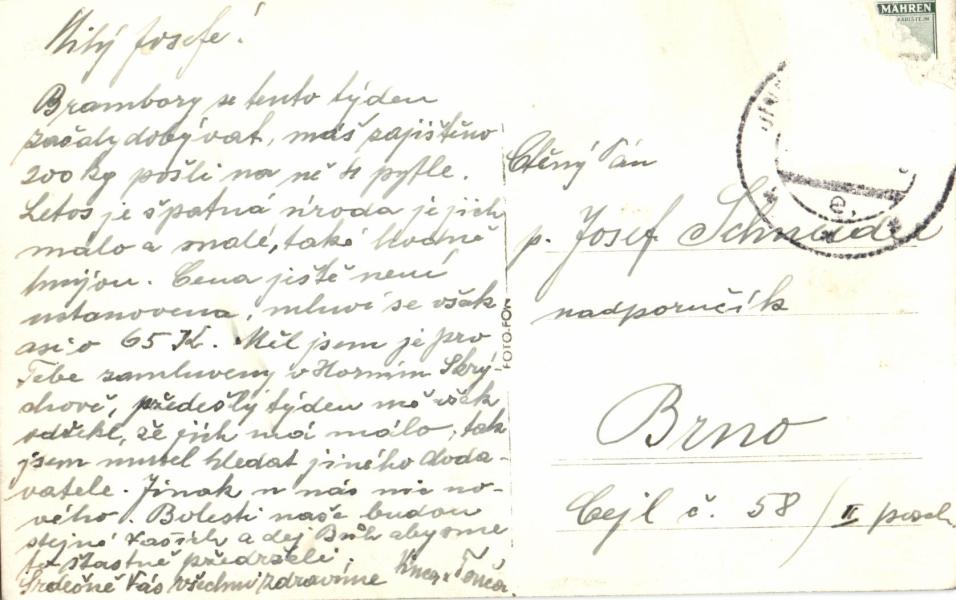 Milý Josefe!
Brambory se tento týden
začaly dobývat, máš zajištěno
200 kg pošli na ně 4 pytle.
Letos je špatná úroda je jich
málo a malé, také hodně
hnijou. Cena ještě není
ustanovena, mluví se však
asi o 65 K. Měl jsem je pro
Tebe zamluveny v Horním Skrý-
chově, předešlý týden mě však
odřekl, že jich má málo, tak
jsem musel hledat jiného doda-
vatele. Jinak u nás nic no-
vého. Bolesti naše budou
stejné a dej Bůh abysme
to šťastně předrželi.
Srdečně Vás všechny zdravíme
MÄHREN
FOTO-FON
Ctěný Pán
p. Josef Schneider
nadporučík
Brno
Cejl č. 58 / II posch.